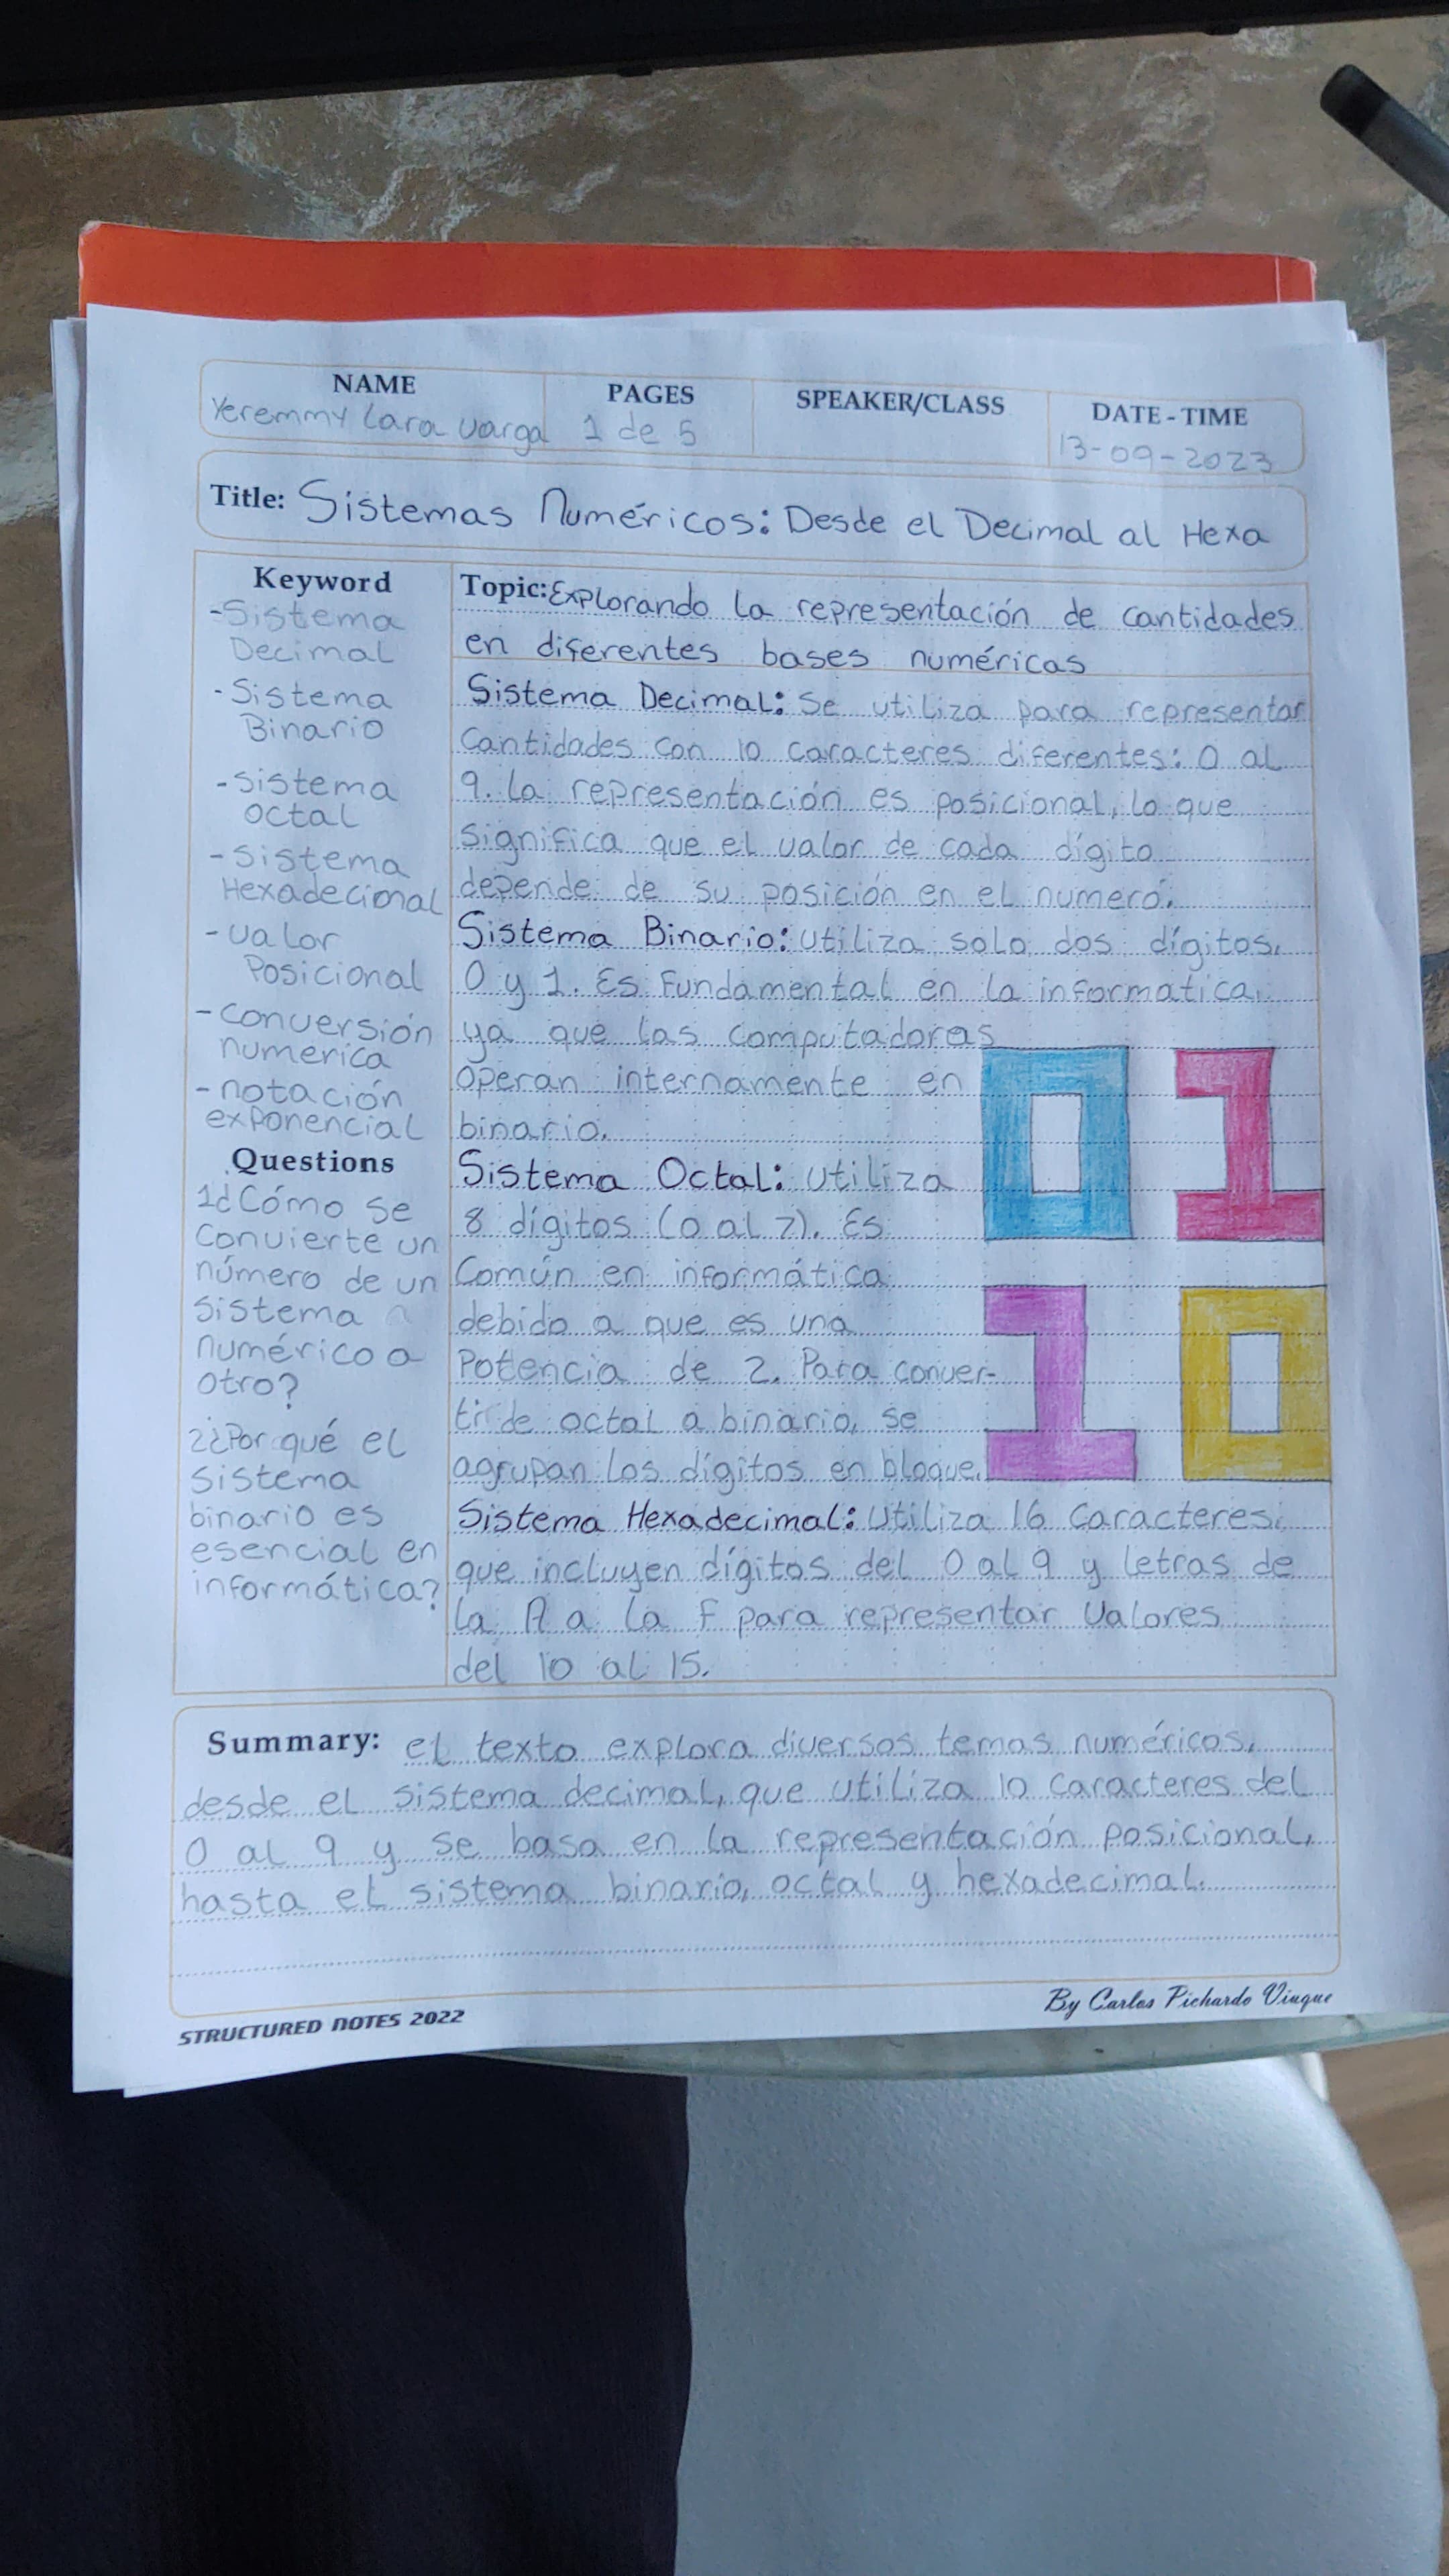 NAME
Yeremmy Lara Varga
PAGES
1 de 5
SPEAKER/CLASS
DATE - TIME
13-09-2023
Title: Sistemas Numéricos: Desde el Decimal al Hexa
Keyword
-Sistema
Decimal
-Sistema
Binario
-Sistema
octal
-Sistema
Hexadecional
-Valor
Posicional
-Conversión
numerica
-notación
exponencial
Questions
1¿Cómo se
Convierte un
número de un
Sistema
numérico a
otro?
2¿Por qué el
Sistema
binario es
esencial en
informática?
Topic: Explorando la representación de cantidades
en diferentes bases numéricas
Sistema Decimal: Se utiliza para representar
Cantidades con 10 caracteres diferentes: 0 al
9. La representación es posicional, lo que
significa que el valor de cada dígito
depende de su posición en el numeró.
Sistema Binario: utiliza solo dos dígitos,
0 y 1. Es Fundamental en la informatica,
ya que las computadoras
operan internamente en
binario.
Sistema Octal: Utiliza
8 dígitos (0 al 7). Es
Común en informática
debido a que es una
Potencia de 2. Para conver-
tir de octal a binario, se
agrupan los dígitos en bloque.
01
10
Sistema Hexadecimal: Utiliza 16 Caracteres,
que incluyen dígitos del 0 al 9 y letras de
la A a la F para representar Valores
del 10 al 15.
Summary: el texto explora diversos temas numéricos,
desde el sistema decimal, que utiliza 10 caracteres del
0 al 9 y se basa en la representación posicional,
hasta el sistema binario, octal y hexadecimal.
STRUCTURED NOTES 2022
By Carlos Pichardo Viuque